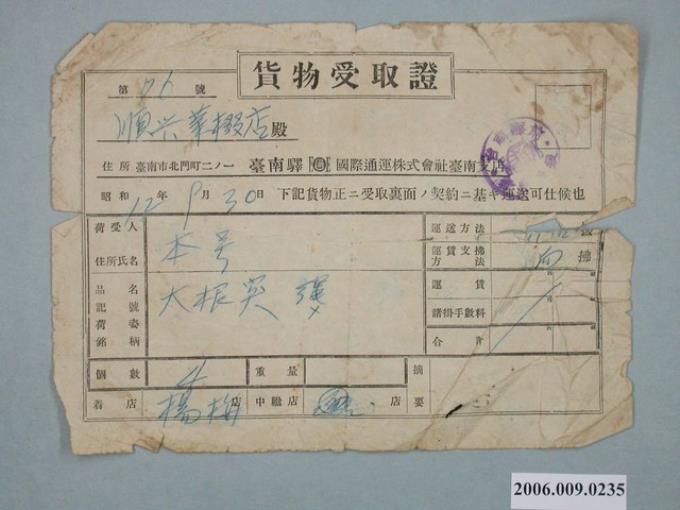 貨物受取證
第 76 號
順兴華棧店殿
住所 臺南市北門町二ノ一 臺南驛 國際通運株式會社臺南支店
昭和 12 年 9 月 30 日 下記貨物正ニ受取裏面ノ契約ニ基キ運送可仕候也
荷受人
住所氏名
本号
運送方法 扱
運賃支拂方法 向 拂
品名
記號
荷姿
銘柄
大根
運賃
諸掛手數料
合計
個數 4 重量 摘要
着店 楊梅 店 中繼店 店
2006.009.0235